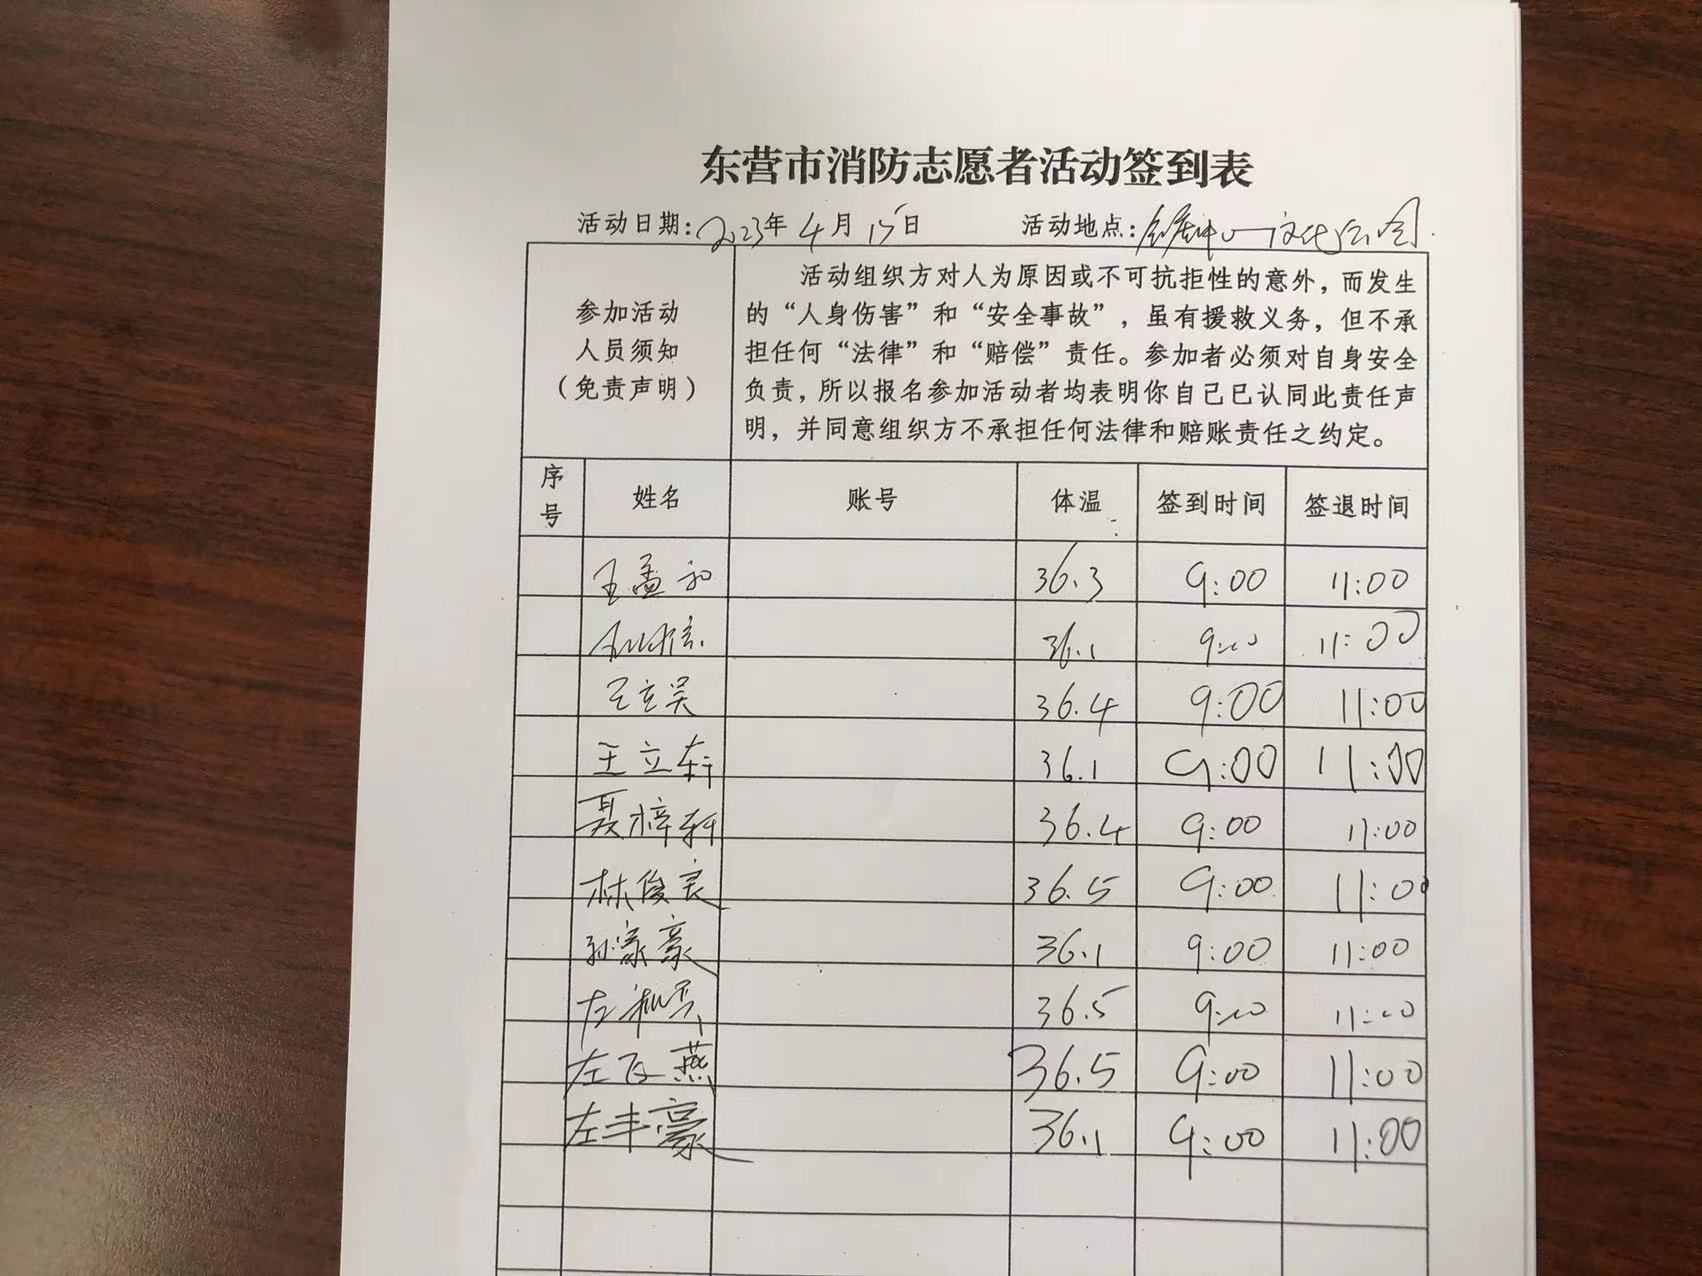 东营市消防志愿者活动签到表
活动日期：2023年4月15日 活动地点：文化公园
参加活动
人员须知
（免责声明）
活动组织方对人为原因或不可抗拒性的意外，而发生
的“人身伤害”和“安全事故”，虽有援救义务，但不承
担任何“法律”和“赔偿”责任。参加者必须对自身安全
负责，所以报名参加活动者均表明你自己已认同此责任声
明，并同意组织方不承担任何法律和赔账责任之约定。
序号 姓名 账号 体温 签到时间 签退时间
王孟 36.3 9:00 11:00
36.1 9:00 11:00
王立昊 36.4 9:00 11:00
王立轩 36.1 9:00 11:00
聂梓轩 36.4 9:00 11:00
林俊良 36.5 9:00 11:00
孙家豪 36.1 9:00 11:00
左 36.5 9:00 11:00
左飞燕 36.5 9:00 11:00
左丰豪 36.1 9:00 11:00